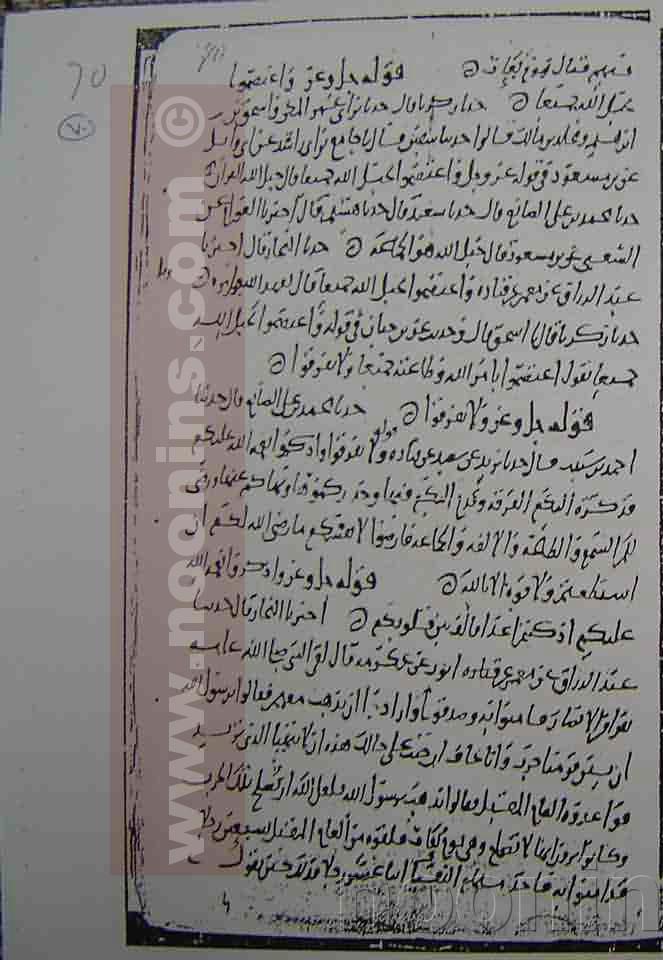 70
٧٠
www.noonins.com ©
قوله جل وعز واعتصموا
بحبل الله جميعا حدثنا زكريا قال حدثنا
عن ابن مسعود في قوله عز وجل واعتصموا بحبل الله جميعا قال حبل الله القرآن
حدثنا محمد بن علي الصائغ قال حدثنا سعيد قال حدثنا هشيم قال أخبرنا العوام عن
الشعبي عن ابن مسعود قال حبل الله هو الجماعة حدثنا النجار قال أخبرنا
عبد الرزاق عن معمر عن قتادة واعتصموا بحبل الله جميعا قال بعهد الله
حدثنا زكريا قال اسحق قال وحدثت عن ابن حيان في قوله واعتصموا بحبل الله
جميعا يقول اعتصموا بأمر الله وطاعته جميعا ولا تفرقوا
قوله جل وعز ولا تفرقوا حدثنا محمد بن علي الصائغ قال حدثنا
احمد بن شبيب قال حدثنا يزيد عن سعيد عن قتادة قوله ولا تفرقوا واذكروا نعمة الله عليكم
قد كره إليكم الفرقة وقدم إليكم فيها وحذركموها ونهاكم عنها ورضي
لكم السمع والطاعة والالفة والجماعة فارضوا لأنفسكم ما رضي الله لكم ان
استطعتم ولا قوة الا بالله قوله جل وعز واذكروا نعمة الله
عليكم اذ كنتم اعداء فألف بين قلوبكم أخبرنا النجار قال حدثنا
عبد الرزاق عن معمر عن ايوب عن عكرمة قال لقي النبي صلى الله عليه
نفرا من الانصار فآمنوا به وصدقوا واراد ان يذهب معهم فقالوا يرسول الله
ان بين قومنا حرب وانا نخاف ان جئت على حالك هذه ان لا يتهيأ الذي تريد
فواعدوه العام المقبل فقالوا نذهب يرسول الله فلعل الله ان يصلح تلك الحرب
وكانوا يرون انها لا تصلح وهي يوم بعاث فلقوه من العام المقبل سبعين رجلا
قد امنوا به فاخذ منهم النقباء اثنا عشر رجلا فذلك حين يقول